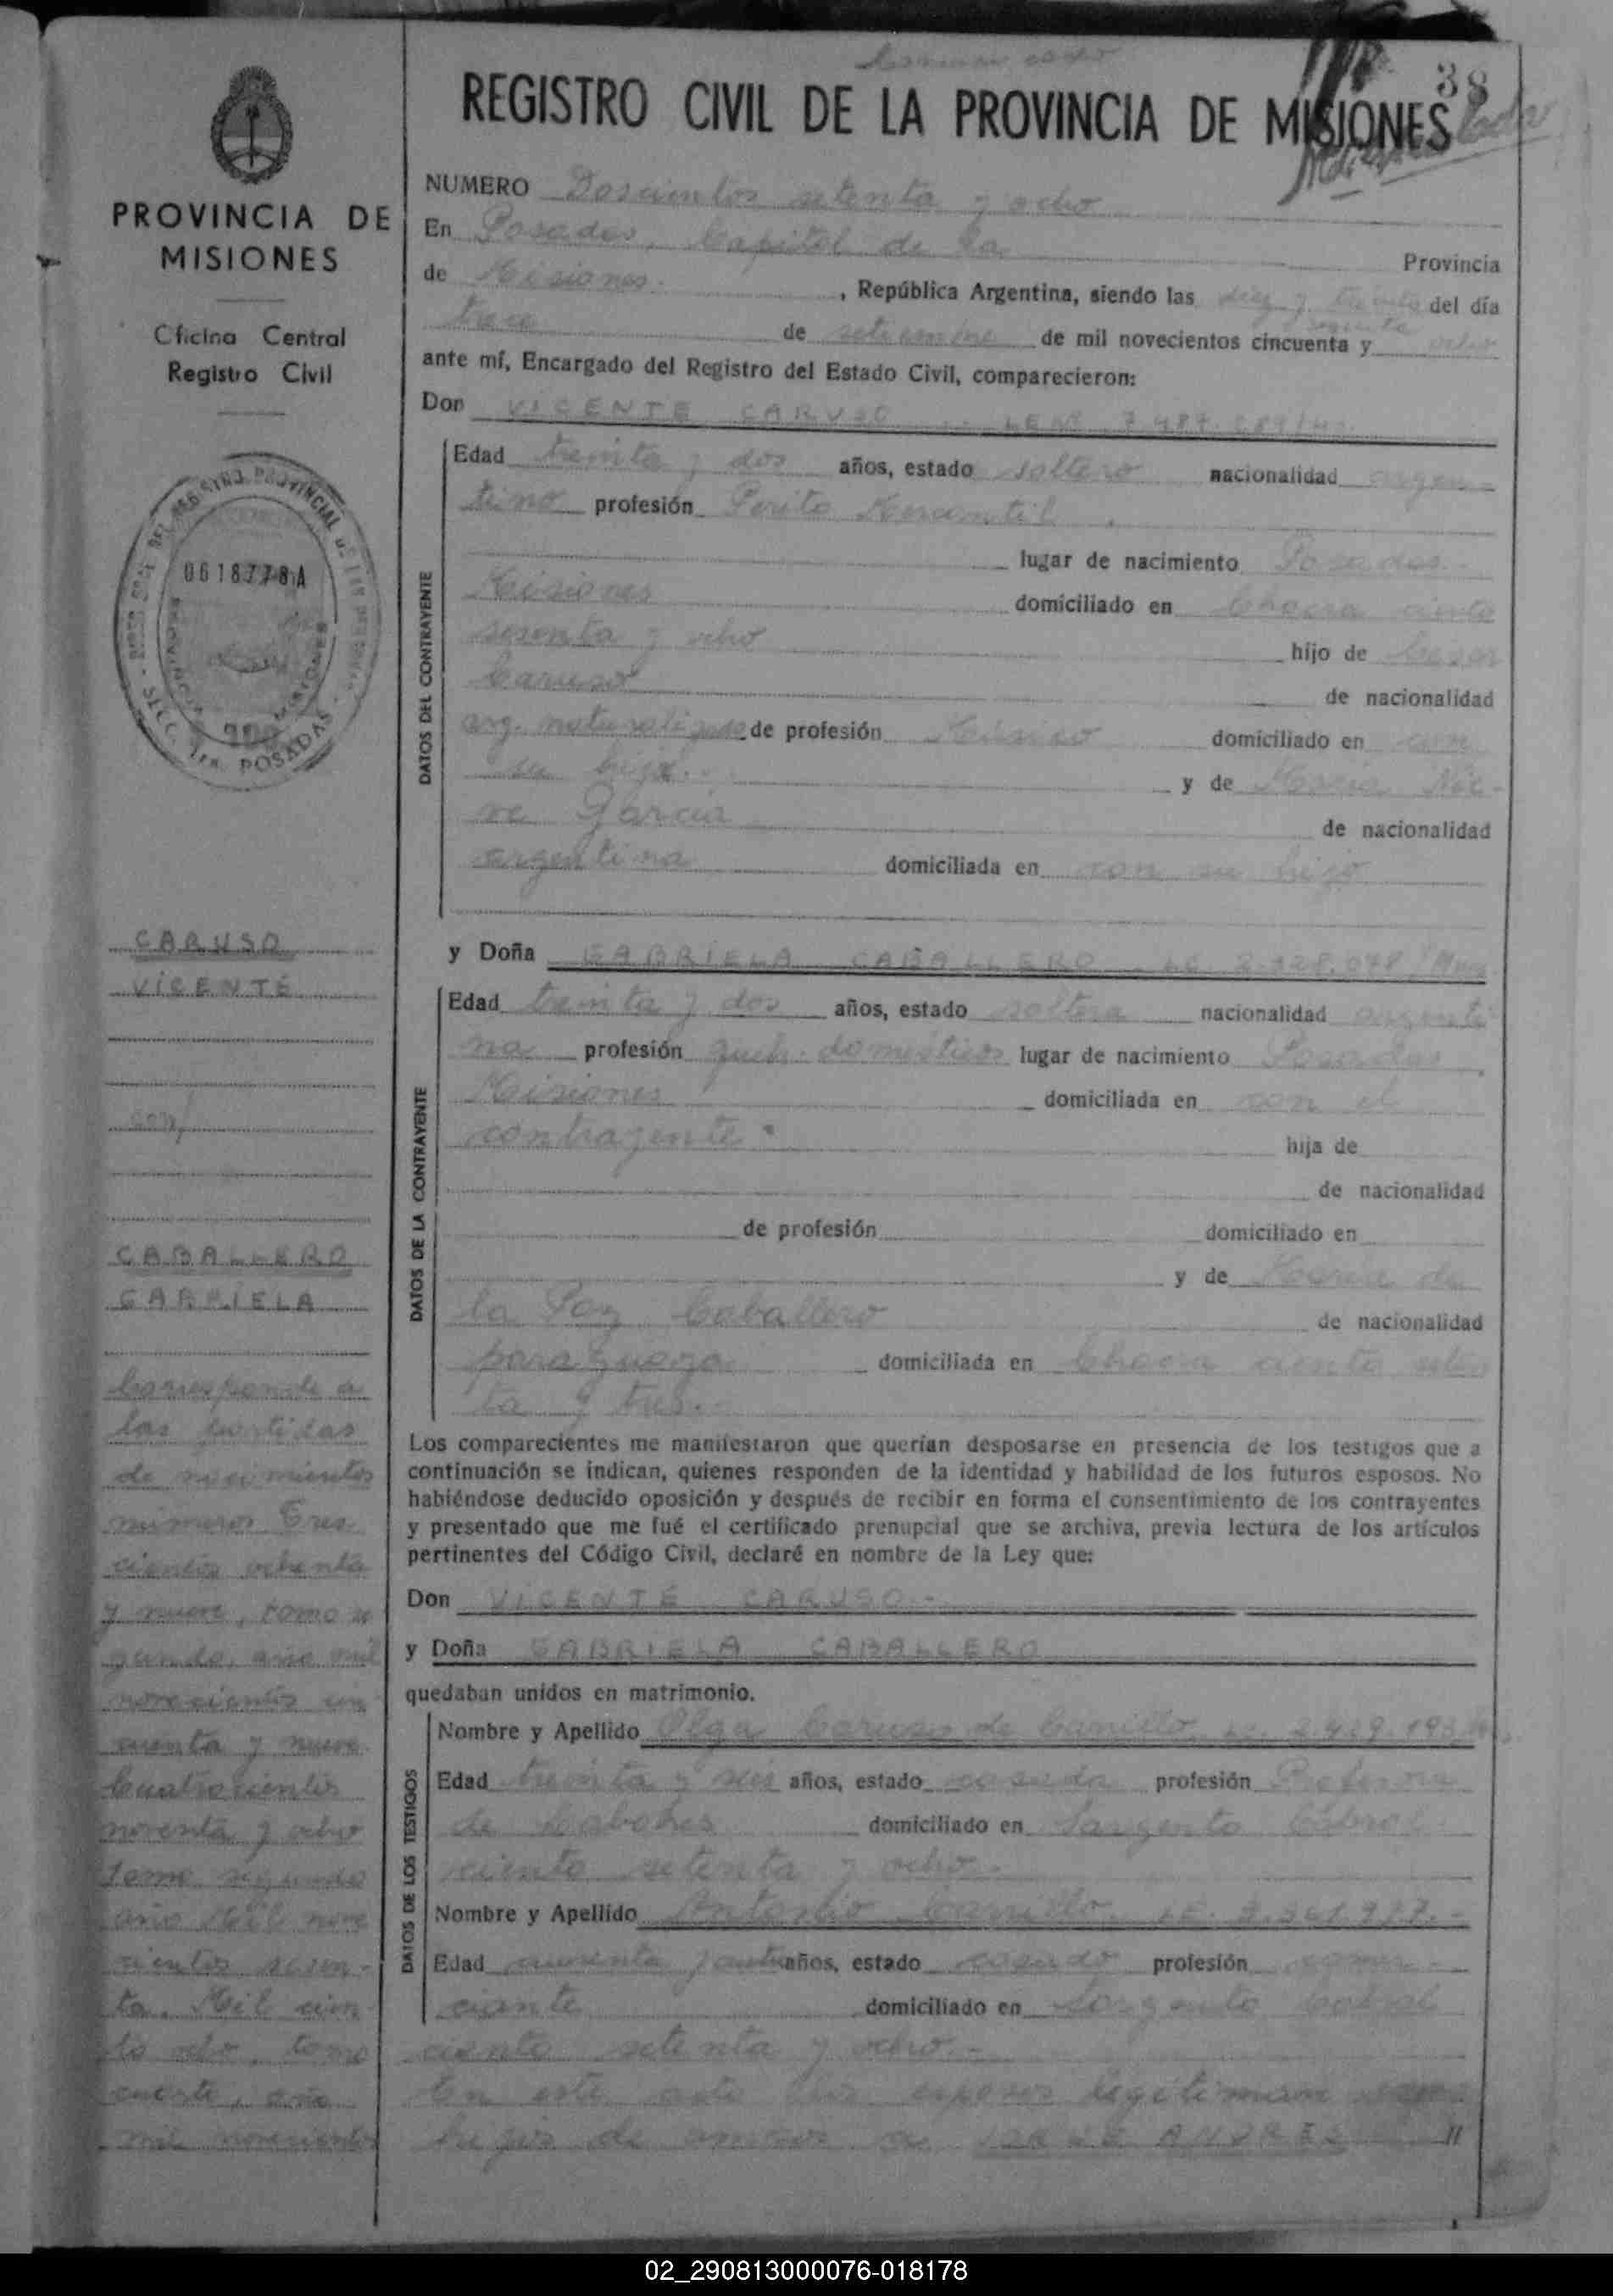 38
REGISTRO CIVIL DE LA PROVINCIA DE MISIONES
PROVINCIA DE
MISIONES
Oficina Central
Registro Civil
0618778A
POSADAS
CARUSO
VICENTE
con
CABALLERO
GABRIELA
Corresponde a
las partidas
de nacimientos
números Tres
cientos ochenta
y nueve, tomo se
gundo, año mil
novecientos cin
cuenta y nueve
Cuatrocientos
noventa y ocho
tomo segundo
año Mil nove
cientos sesen-
ta. Mil cien
to ocho, tomo
cuarto, año
mil novecientos
NUMERO Doscientos setenta y ocho
En Posadas, Capital de la Provincia
de Misiones. , República Argentina, siendo las diez y treinta del día
trece de setiembre de mil novecientos cincuenta y sesenta ocho
ante mí, Encargado del Registro del Estado Civil, comparecieron:
Don VICENTE CARUSO LE Nº
DATOS DEL CONTRAYENTE
Edad treinta y dos años, estado soltero nacionalidad argen-
tino profesión Perito Mercantil
lugar de nacimiento Posadas
Misiones domiciliado en Chacra ciento
sesenta y ocho hijo de Cesar
Caruso de nacionalidad
arg. naturalizado de profesión Músico domiciliado en con
su hijo. y de María
García de nacionalidad
argentina domiciliada en con su hijo
y Doña GABRIELA CABALLERO LC
DATOS DE LA CONTRAYENTE
Edad treinta y dos años, estado soltera nacionalidad argenti
na profesión queh. domésticos lugar de nacimiento Posadas
Misiones domiciliada en con el
contrayente hija de
de nacionalidad
de profesión domiciliado en
y de María de
la Paz Caballero de nacionalidad
paraguaya domiciliada en Chacra ciento seten
ta y tres.-
Los comparecientes me manifestaron que querían desposarse en presencia de los testigos que a
continuación se indican, quienes responden de la identidad y habilidad de los futuros esposos. No
habiéndose deducido oposición y después de recibir en forma el consentimiento de los contrayentes
y presentado que me fué el certificado prenupcial que se archiva, previa lectura de los artículos
pertinentes del Código Civil, declaré en nombre de la Ley que:
Don VICENTE CARUSO.-
y Doña GABRIELA CABALLERO
quedaban unidos en matrimonio.
DATOS DE LOS TESTIGOS
Nombre y Apellido Olga Caruso de Carrillo
Edad treinta y seis años, estado casada profesión Profesora
de Labores domiciliado en Sargento Cabral
ciento setenta y ocho.-
Nombre y Apellido Antonio Carrillo LE.
Edad cuarenta y cuatro años, estado casado profesión comer-
ciante domiciliado en Sargento Cabral
ciento setenta y ocho.-
En este acto los esposos legitiman
hijos de JORGE ANDRES //
02_290813000076-018178